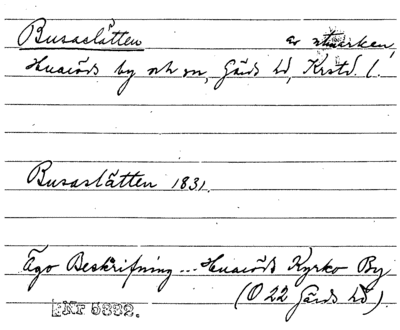 Busaslätten av utmarken,
Huaröds by och sn, Gärds hd, Krstd. l.
Busaslätten 1831.
Ägo Beskrifning... Huaröds Kyrko By
(O 22 Gärds hd)
Nr 5832.